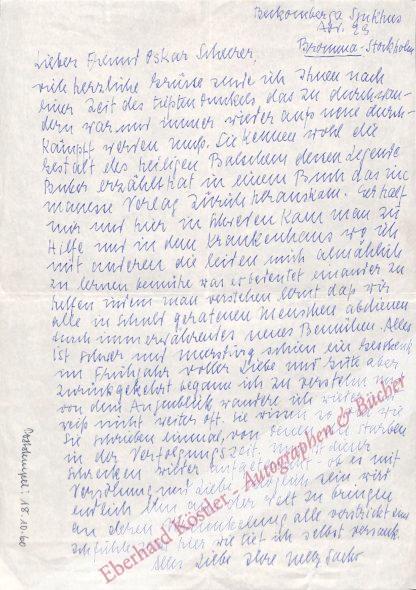 Beckomberga Sjukhus
Avd. 23
Bromma-Stockholm
Lieber Freund Oskar Scherrer,
viele herzliche Grüsse sende ich Ihnen nach
einer Zeit des tiefsten Dunkels, das zu durchwan-
dern war und immer wieder aufs neue durch-
kämpft werden muß. Sie kennen wohl die
Gestalt des heiligen Balschem dessen Legende
Buber erzählt hat in einem Buch das im
Manesse Verlag Zürich herauskam. Er half
mir und hier in Schweden kam man zu
Hilfe und in dem Krankenhaus wo ich
mit anderen die leiden mich allmählich
zu lernen bemühe was es bedeutet einander zu
helfen indem man verstehen lernt daß wir
alle in Schuld geratenen Menschen abdienen
durch immerwährendes neues Bemühen. Alles
ist schwer und schien ein Geschenk
im Frühjahr voller Liebe und Güte aber
zurückgekehrt begann ich zu verstehen
von dem Augenblick wandere ich und
weiß nicht weiter oft. Sie wissen so gut wie
Sie schreiben einmal, von denen die starben
in der Verfolgungszeit,
Schrecken wieder ob es mit
Versöhnung und Liebe möglich sein wird
endlich Welt zu bringen
an deren alle verstrickt sind
hier wie tief ich selbst versank.
Alles Liebe Ihre Nelly Sachs
Poststempel: 18.10.60
Eberhard Köstler - Autographen & Bücher